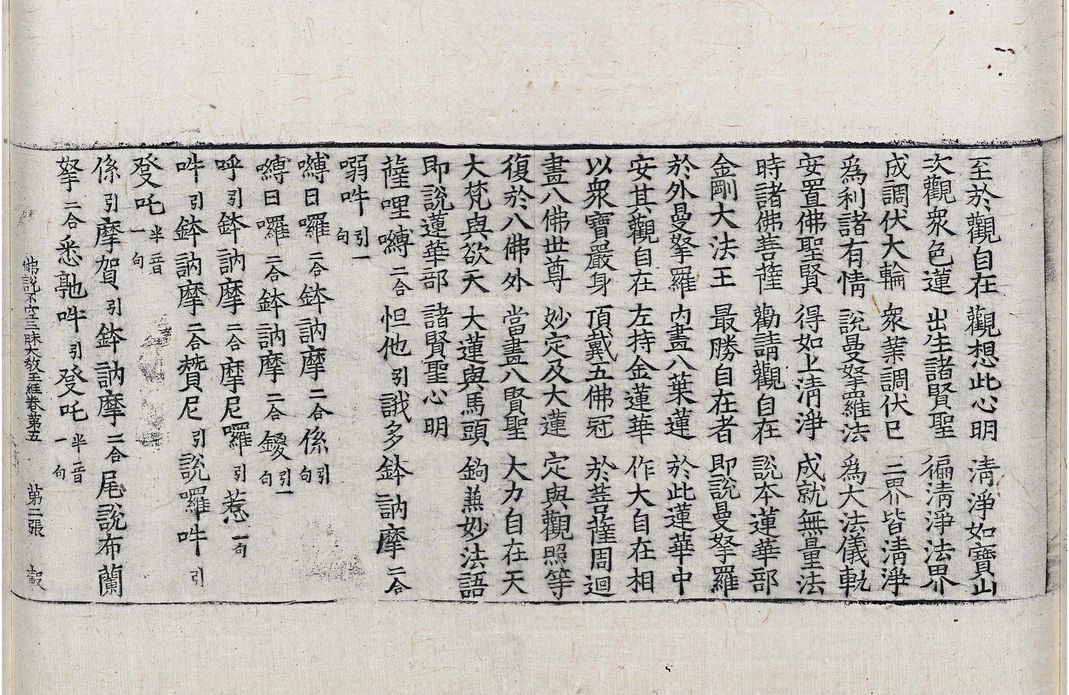 至於觀自在 觀想此心明 清淨如寶山
次觀衆色蓮 出生諸賢聖 徧清淨法界
成調伏大輪 衆葉調伏已 二界皆清淨
爲利諸有情 說曼拏羅法 爲大法儀軌
安置佛聖賢 得如上清淨 成就無量法
時諸佛菩薩 勸請觀自在 說本蓮華部
金剛大法王 最勝自在者 即說曼拏羅
於外曼拏羅 內畫八葉蓮 於此蓮華中
安其觀自在 左持金蓮華 作大自在相
以衆寶嚴身 頂戴五佛冠 於菩薩周迴
畫八佛世尊 妙定及大蓮 定與觀照等
復於八佛外 當畫八賢聖 大力自在天
大梵與欲天 大蓮與馬頭 鉤兼妙法語
即說蓮華部 諸賢聖心明
薩哩嚩二合怛他引誐多鉢訥摩二合
弱吽引一句
嚩日囉二合鉢訥摩二合係引句
嚩日囉二合鉢訥摩二合鑁引一句
呼引鉢訥摩二合摩尼囉引惹一句
吽引鉢訥摩二合贊尼引說囉吽引
發吒半音一句
係引摩賀引鉢訥摩二合尾說布蘭
拏二合悉馳吽引發吒半音一句
佛說不空三昧大教王經卷第五 第二張 㲉